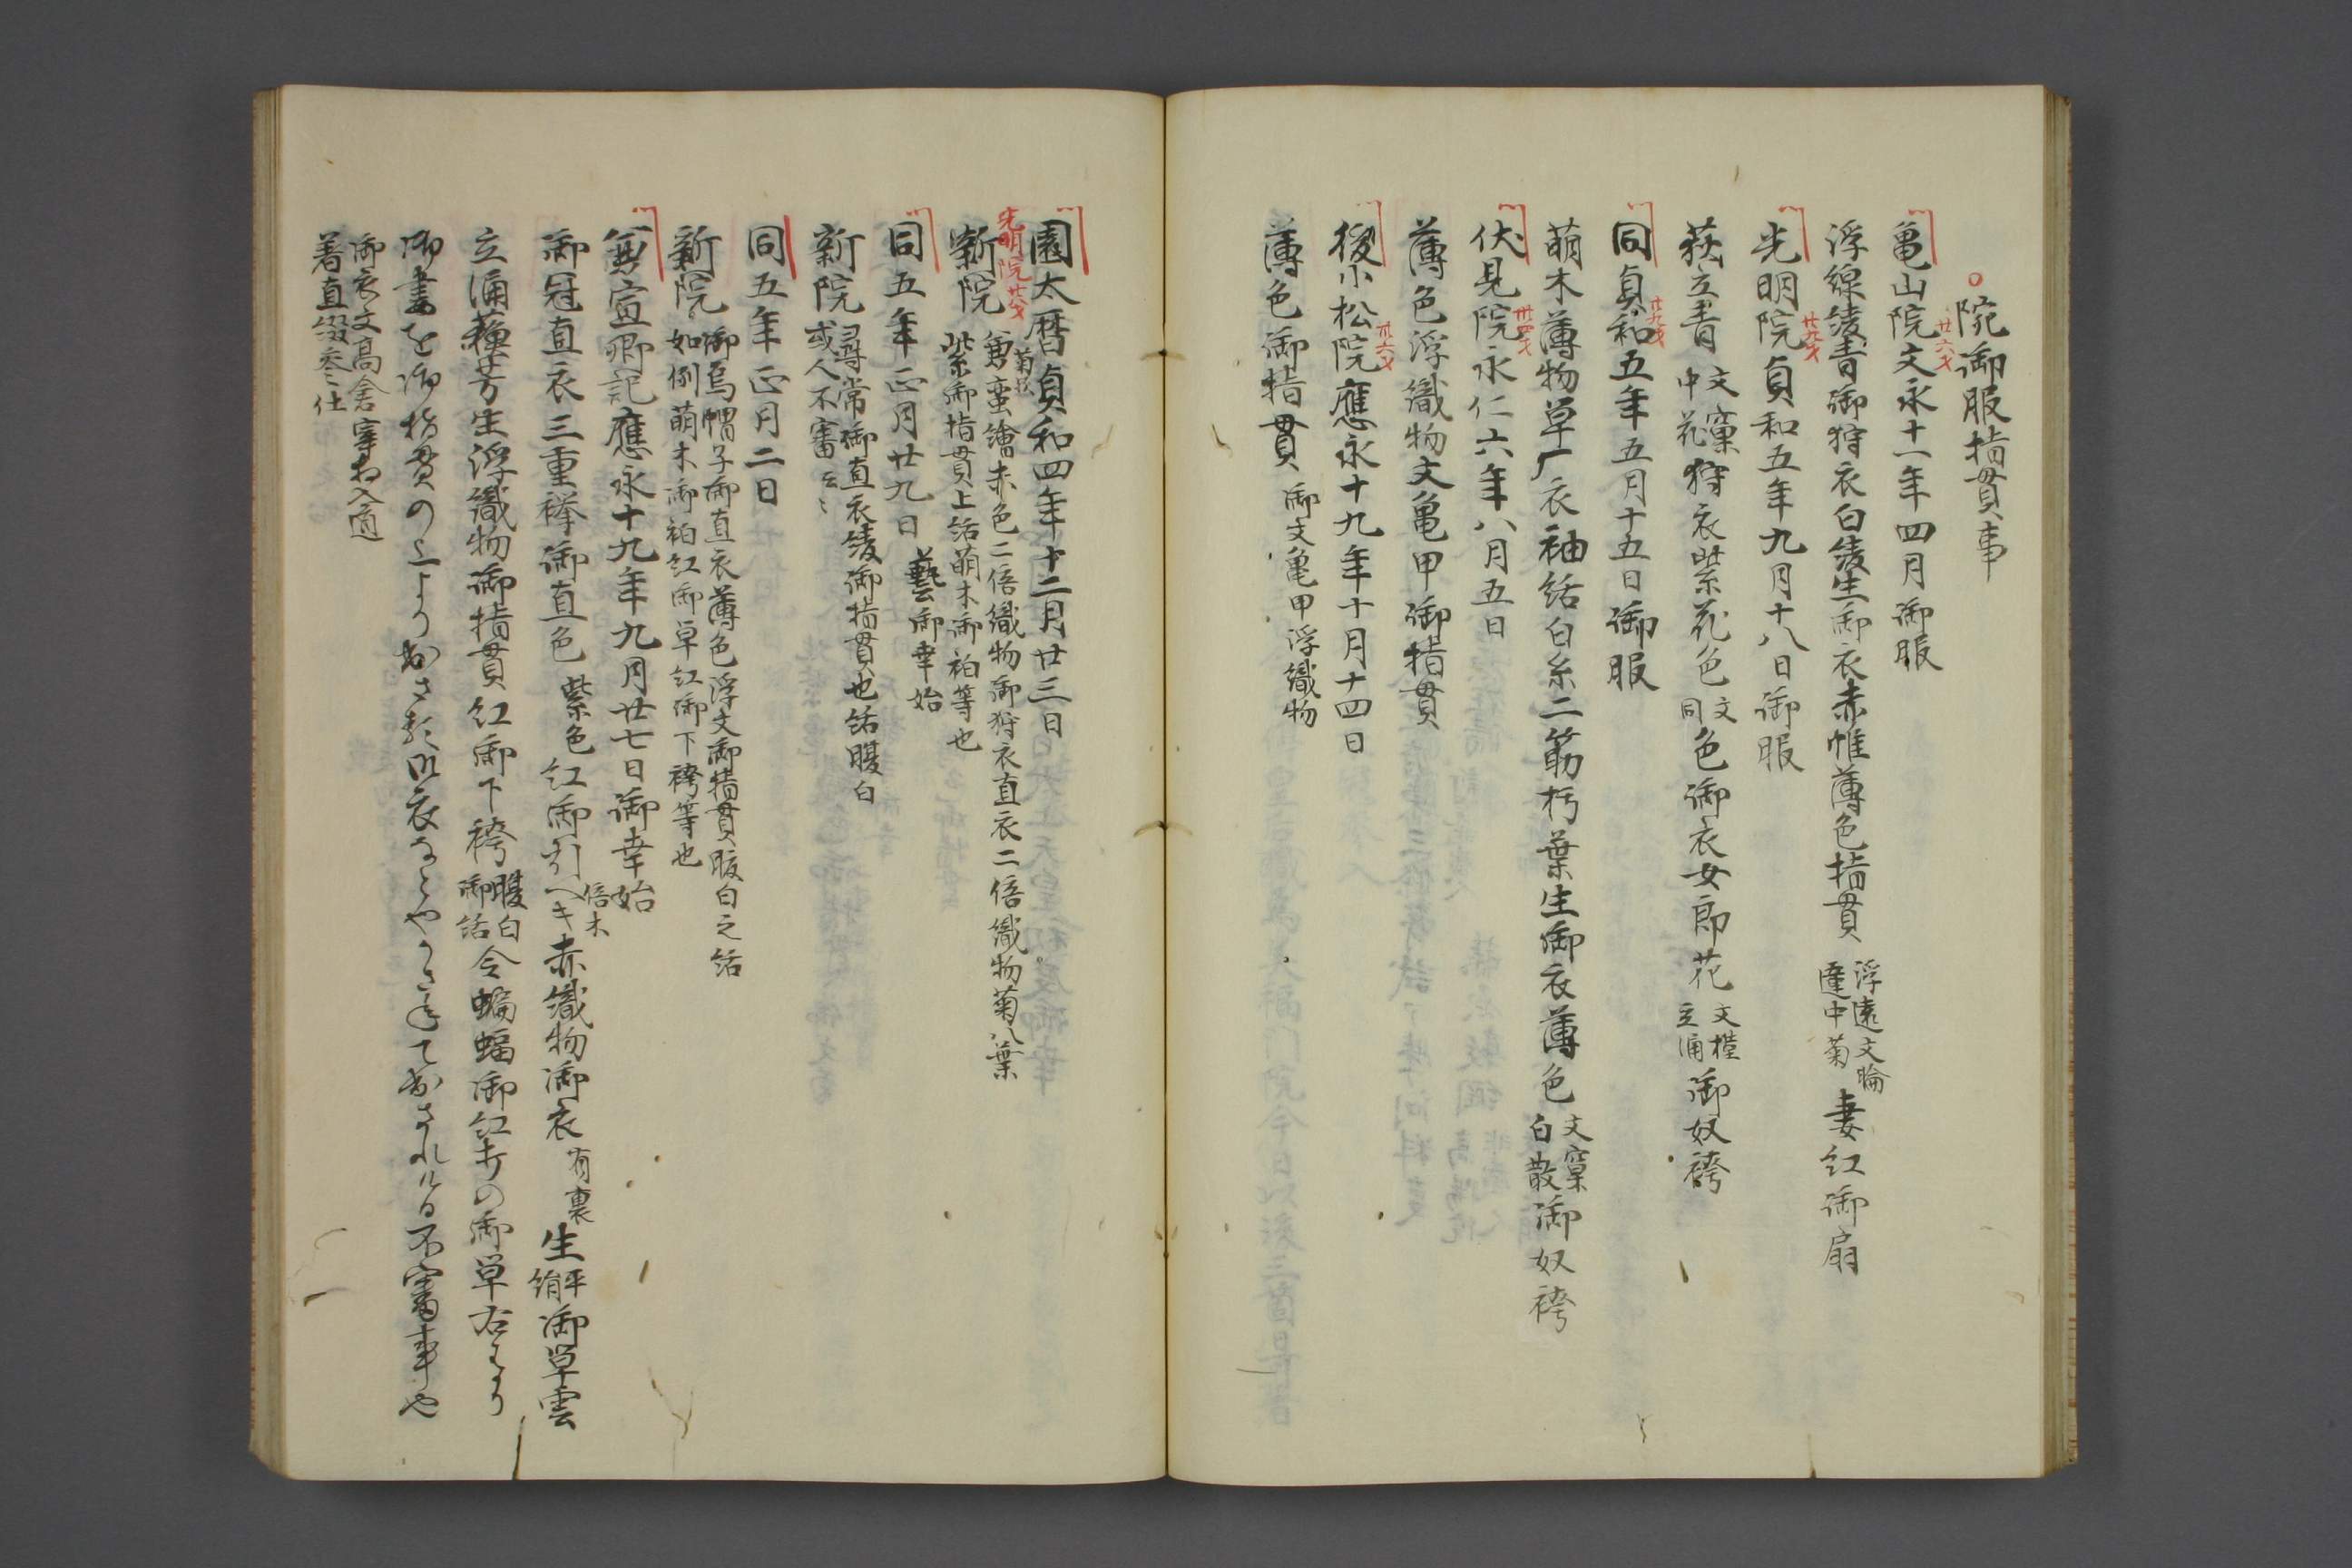 院御服指貫事
亀山院文永十一年四月御服
廿六才
浮線綾青御狩衣白綾生御衣赤帷薄色指貫
浮遠文輪
違中菊
妻紅御扇
光明院貞和五年九月十八日御服
廿九才
萩立青
文窠
中花
狩衣紫花色
文
同
色御衣女郎花
文
立涌
御奴袴
同貞和五年五月十五日御服
廿九才
萌木薄物草厂衣袖括白糸二筋朽葉生御衣薄色
文窠
白散
御奴袴
伏見院永仁六年八月五日
卅四才
薄色浮織物文亀甲御指貫
後小松院應永十九年十月十四日
卅六才
薄色御指貫
御文亀甲浮織物
園太暦貞和四年十二月廿三日
光明院廿八才
新院
蛮繪赤色二倍織物御狩衣直衣二倍織物菊八葉
紫御指貫上括萌木御袙等也
同五年正月廿九日
藝御幸始
新院
尋常御直衣綾御指貫也括腹白
或人不審云々
同五年正月二日
新院
御烏帽子御直衣薄色浮文御指貫腹白之括
如例萌木御袙紅御単紅御下袴等也
兼宣卿記應永十九年九月廿七日御幸始
御冠直衣三重襷御直色
紫色
紅御引ヘキ
倍木
赤織物御衣
有裏
生
平
絹
御単雲
立涌蘓芳生浮織物御指貫紅御下袴
腹白
御括
令蝙蝠御紅
の御単右
御妻を御指貫の上より
不審事や
御衣文高倉宰相入道
着直綴参仕